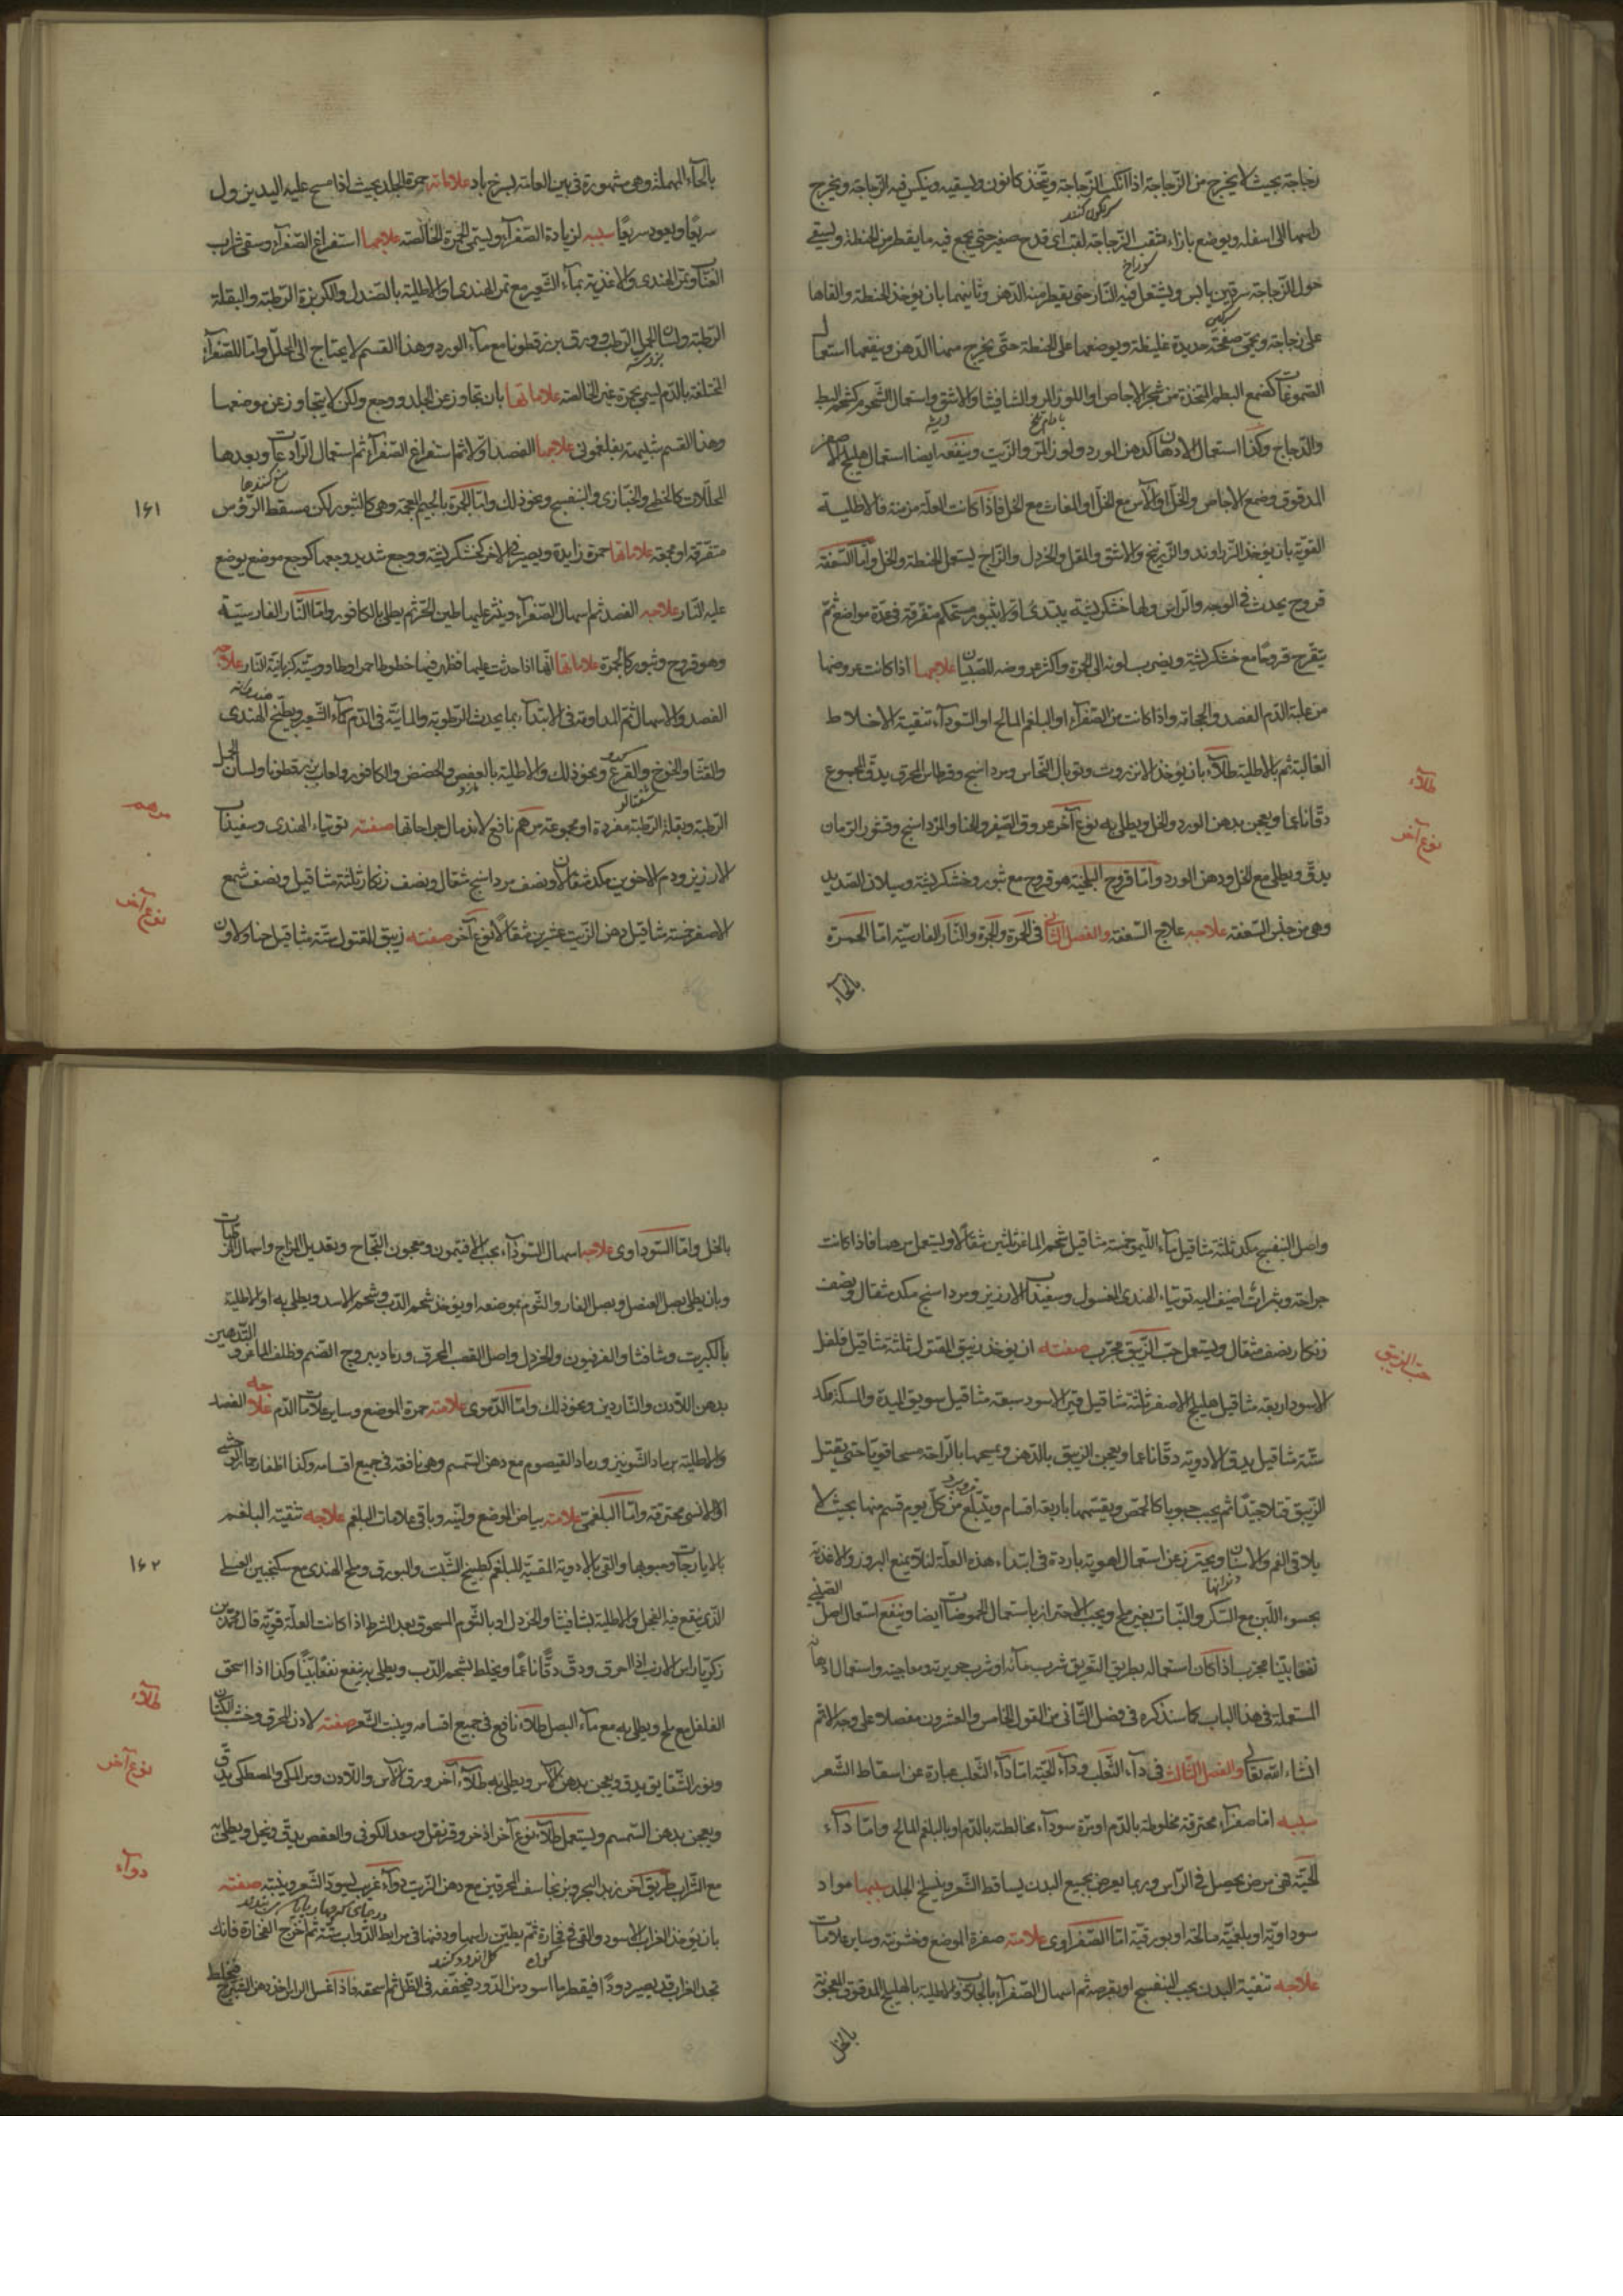 زجاجة بحيث لا يخرج من الزجاجة اذا انكب الزجاجة ويتخذ كانون وليسقيه وينكس فيه الزجاجة ويخرج
سرنكون كنند
راسها الى اسفله ويوضع بازاء ثقب الزجاجة لقب اى قدح صغير حتى يجمع فيه ما يقطر من الحنطة وليسقى
سوراخ
حول الزجاجة سرقين يابس ويشتعل فيه النار حتى يقطر منه الدهن وثانيهما بان يؤخذ الحنطة والقاها
سركين
على زجاجة ويحمى صفحة حديدة غليظة ويوضعها على الحنطة حتى يخرج منها الدهن وينفعها استعمال
الصموغات كصمغ البطم المتخذة من شجر الاجاص او اللوز المر والشافيشا والاشق واستعمال الشحوم كشحم البط
بادام تلخ
والدجاج وكذا استعمال الادهان كدهن الورد ولوز المر والزيت وينفعه ايضا استعمال هليلج الاصفر
المدقوق وصمغ الاجاص والخل او الآس مع الخل او المغاث مع الخل فاذا كانت العلة مزمنة فالاطلية
القوية بان يؤخذ الزراوند والزرنيخ والاشق والمقل والخردل والزاج ليستعمل الحنطة والخل وأما السعفة
قروح يحدث فى الوجه والراس ولها خشكريشة يبتدى اولا بثبور مستحكم متفرقة فى عدة مواضع ثم
يتقرح قروحا مع خشكريشة ويضرب لونه الى الحمرة واكثر عروضه للصبيان علاجها اذا كانت عروضها
من غلبة الدم الفصد والحجامة واذا كانت من الصفراء او البلغم المالح او السوداء تنقية الاخلاط
الغالبة ثم بالاطلية طلاء بان يؤخذ الانزروت وتوبال النحاس ومرداسنج وقرطاس المحرق يدق المجموع
طلاء
دقا ناعما ويعجن بدهن الورد والخل ويطلى به نوع آخر عروق الصفر والحنا والمرداسنج وقشور الرمان
نوع آخر
يدق ويطلى مع الخل ودهن الورد واما قروح البلخية هو قروح مع ثبور وخشكريشة وسيلان الصديد
وهى من جنس السعفة علاجه علاج السعفة والفصل الثانى فى الحمرة والجمرة والنار الفارسية اما الحمرة
بالحاء
بالحاء المهملة وهى مشهورة فى بين العامة بسرخ باد علاماته حمرة الجلد بحيث اذا مسح عليه اليد يزول
سريعا ويعود سريعا سببه لزيادة الصفراء وليسمى الحمرة الخالصة علاجها استفراغ الصفراء وسقى شراب
العناب وتمر الهندى والاغذية بماء الشعير مع تمر الهندى والاطلية بالصندل والكزبرة الرطبة والبقلة
الرطبة ولسان الحمل الرطب وورق بزرقطونا مع ماء الورد وهذا القسم لا يحتاج الى المحلل واما الصفراء
المختلفة بالدم ليسمى بحمرة غير الخالصة علاماتها بان تجاوز عن الجلد ووجع ولكن لا يتجاوز عن موضعها
وهذا القسم شبيهة بفلغمونى علاجها الفصد اولا ثم استفراغ الصفراء ثم استعمال الرادعات وبعدها
المحللات كالخطمى والخبازى والبنفسج ونحو ذلك واما الجمرة بالجيم المعجمة وهى كالثبور لكن مسقط الرؤس
١٦١
متفرقة او مجمعة علاماتها حمرة زايدة ويصير فى الآخر كخشكريشة ووجع شديد وجعها كوجع موضع يوضع
عليه النار علاجه الفصد ثم اسهال الصفراء وينثر عليها طين الحر ثم يطلى بالكافور واما النار الفارسية
وهو قروح وثبور كالجمرة علاماتها انها اذا حدثت عليها فظهر فيها خطوطا حمرا
الفصد والاسهال ثم المداومة فى الابتداء بما يحدث الرطوبة والمائية فى الدم كماء الشعير وبطيخ الهندى
والقثاء والخوخ والقرع ونحو ذلك والاطلية بالعفص والحضض والكافور ولعاب بزرقطونا ولسان الحمل
شفتالو
الرطبة وبقلة الرطبة مفردة او مجموعة مرهم نافع لاندمال جراحاتها صفته توتياء الهندى وسفيداب
مرهم
الارزيز ودم الاخوين مكد مثقالان ونصف مرداسنج مثقال ونصف زنكار ثلثة مثاقيل ونصف شمع
الاصفر خمسة مثاقيل دهن الزيت عشرين مثقالا نوع آخر صفته زيبق المقتول ستة مثاقيل حنا ولاون
نوع آخر
واصل البنفسج مكد ثلثة مثاقيل ماء الليمو خمسة مثاقيل شحم الماعز ثلثين مثقالا وليستعمل مرهما فاذا كانت
جراحة وبثرات اضيف اليه توتياء الهندى المغسول وسفيداب الارزيز ومرداسنج مكد مثقال ونصف
زنكار نصف مثقال وليستعمل حب الزيبق مجرب صفته ان يؤخذ زيبق المقتول ثلثة مثاقيل فلفل
حب الزيبق
الاسود اربعة مثاقيل هليلج الاصفر ثلثة مثاقيل قير الاسود سبعة مثاقيل سويق
ستة مثاقيل يدق الادوية دقا ناعما ويعجن الزيبق بالدهن ويمسحها بالراحة مسحا قويا حتى يقتل
الزيبق قتلا جيدا ثم يحبب حبوبا كالحمص ويقسمها باربعة اقسام ويبتلع من كل يوم قسم منها بحيث لا
يلاقى الفم والاسنان ويحترز عن استعمال اهوية باردة فى ابتداء هذه العلة لئلا يمنع البروز والاغذية
دندانها
بحسوء اللبن مع السكر والنبات بغير ملح ويجب الاحتراز باستعمال الحموضات ايضا وينفع استعمال اصل الصينى
نفعا بينا مجرب اذا كان استعماله بطريق التعريق شرب مائه او شرب حريرته ومعاجينه واستعمال ادهان
المستعملة فى هذا الباب كما سنذكره فى فصل الثانى من القول الخامس والعشرون مفصلا وعلى وجه الاتم
انشاء الله تعالى والفصل الثالث فى داء الثعلب وداء الحية اما داء الثعلب عبارة عن اسقاط الشعر
سببه اما صفراء محترقة مخلوطة بالدم او مرة سوداء مخالطة بالدم او بالبلغم المالح واما داء
الحية هى مرض يحصل فى الراس وربما يعرض بجميع البدن يساقط الشعر وينسلخ الجلد سببها مواد
سوداوية او بلغمية مالحة او بورقية اما الصفراوى علامته صفرة الموضع وخشونته وساير علامات
علاجه تنقية البدن بحب البنفسج او بقرصه ثم اسهال الصفراء والاطلية بالهليلج المدقوق المعجونة
بالخل
بالخل واما السوداوى علاجه اسهال السوداء بحب الافتيمون ومعجون النجاح وتعديل المزاج
وبان يطلى بصل العنصل وبصل الفار والثوم بموضعه او يؤخذ شحم الدب وشحم الاسد ويطلى به او الاطلية
بالكبريت وشافشا والفرفيون والخردل واصل القصب المحرق ورماد يبروج الصنم وظلف الماعز والتدهين
بدهن اللادن والناردين ونحو ذلك واما الدموى علامته حمرة الموضع وساير علامات الدم علاجه الفصد
والاطلية برماد الشونيز ورماد القيصوم مع دهن السمسم وهى نافعة فى جميع اقسامه وكذا اظفار حمار الوحشى
او الانسى محترقة واما البلغمى علامته بياض الموضع ولينه وباقى علامات البلغم علاجه تنقية البلغم
بالايارجات وحبوبها والقى بالادوية المقيئة للبلغم كطبيخ الشبت والبورق وملح الهندى مع سكنجبين العسلى
١٦٢
الذى ينقع فيه الفجل والاطلية بشافيشا والخردل او بالثوم المسحوق بعد الشرط اذا كانت العلة قوية قال محمد بن
زكريا راس الارنب اذا احرق ودق دقا ناعما ويخلط بشحم الدب ويطلى به ينفع نفعا بينا وكذا اذا اسحق
الفلفل مع ملح ويطلى به مع ماء البصل طلاء نافع فى جميع اقسامه وينبت الشعر صفته لادن المحرق وخشب الكتان
طلاء
ونور الشقايق يدق ويعجن بدهن الآس ويطلى به طلاء آخر ورق الآس واللادن ومر المكى والمصطكى يدق
نوع آخر
ويعجن بدهن السمسم ويستعمل طلاء نوع آخر اذخر وقرنفل وسعد الكوفى والعفص يدق وينخل ويطلى به
مع الشراب طريق آخر زبد البحر المحرقين مع دهن الزيت دواء غريب ليسود الشعر وينبته صفته
دواء
بان يؤخذ الغراب الاسود والقى فى فخارة ثم يطين راسها ودفنها فى مرابط الدواب ستة ثم اخرج الفخارة فانك
كل اندود كنند
تجد الغراب قد يصير دودا فيقطر ما اسود من الدود فيجففه فى الظل ثم اسحقه فاذا اغسل الراس اخذ دهن الشيرج فيخلط